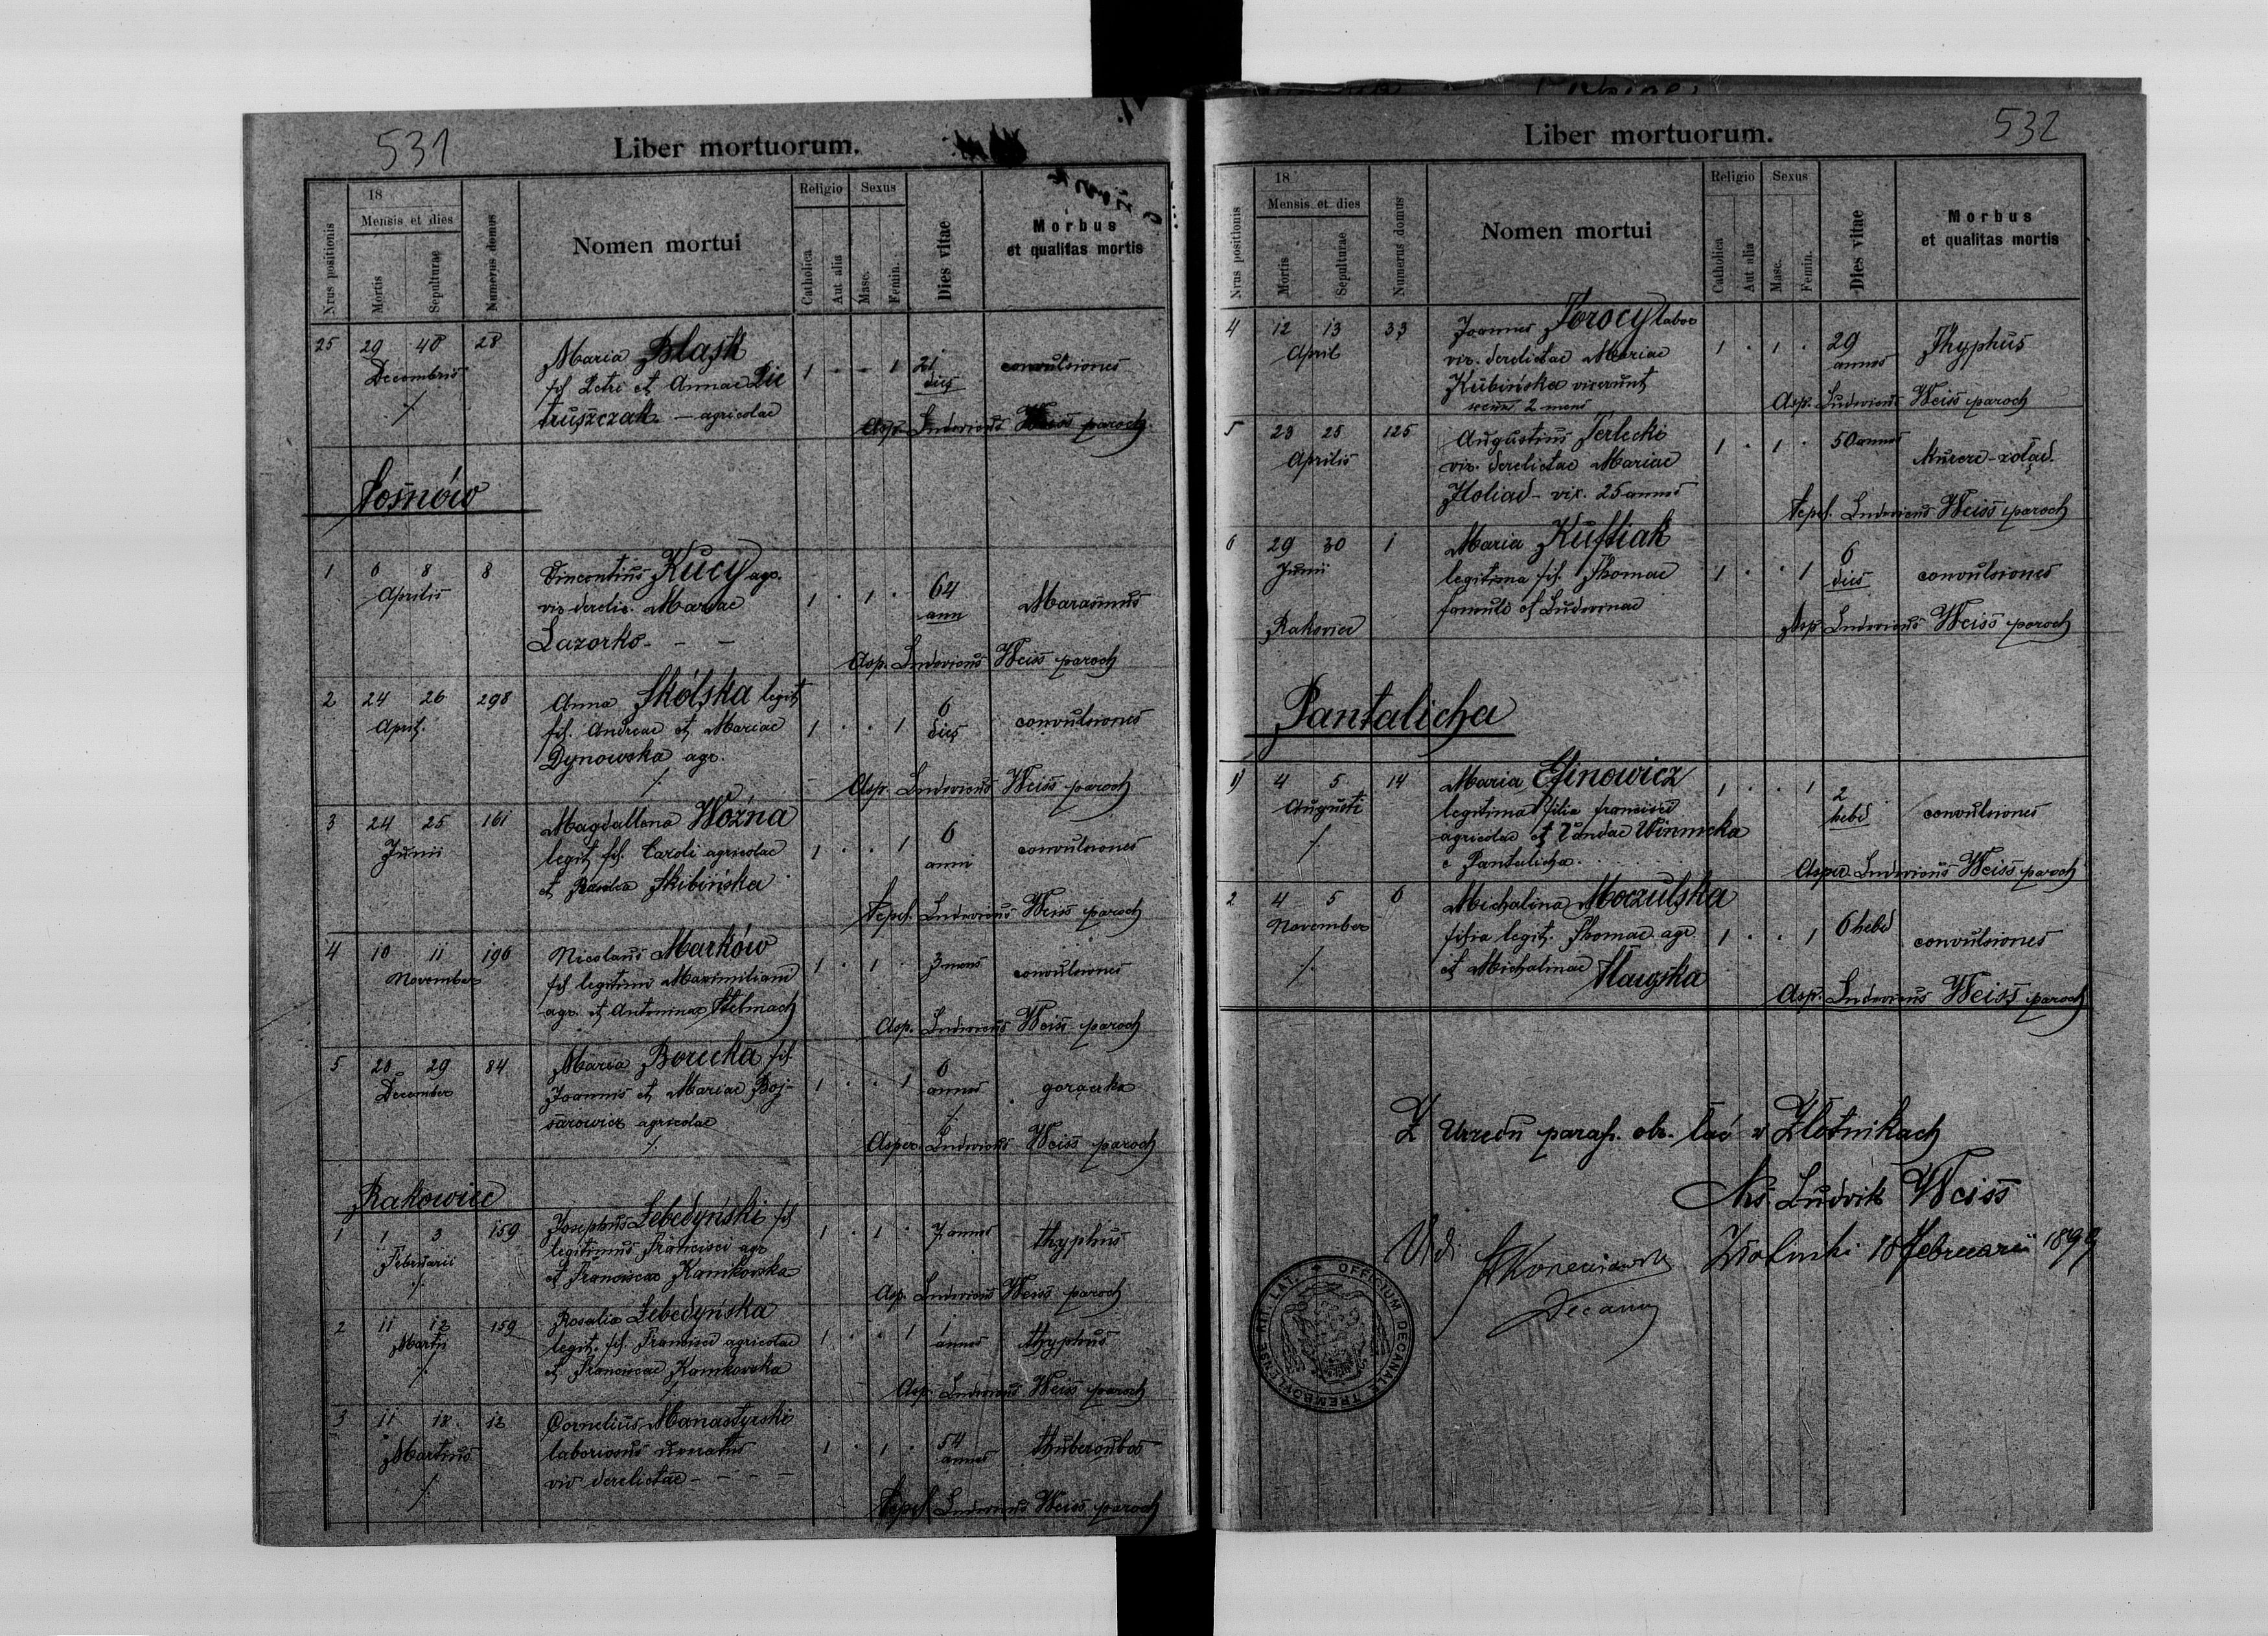 531
Liber mortuorum.
Nrus positionis
18
Mensis et dies
Mortis
Sepulturae
Numerus domus
Nomen mortui
Religio
Catholica
Aut alia
Sexus
Masc.
Femin.
Dies vitae
Morbus
et qualitas mortis
25 29 28 Maria Błaszk 1 - - 1 21 convulsiones
Decembris fil. Petri et Annae Pie dies
truszczak - agricolae Asp. Ludovicus Weiss paroch
Sosnów
1 6 8 8 Vincentius Kucy agr. 64
Aprilis vir derelic. Mariae 1 . 1 . ann Marasmus
Lazorko - -
Asp. Ludovicus Weiss paroch
2 24 26 298 Anna Skólska legit 6
April. fil. Andreae et Mariae 1 . . 1 dies convulsiones
Dynowska agr.
Asp. Ludovicus Weiss paroch
3 24 25 161 Magdallena Woźna 6
Junii legit fil. Caroli agricolae 1 . . 1 anni convulsiones
et Rosalia Skibińska
Sepel. Ludovicus Weiss paroch
4 10 11 196 Nicolaus Marków
November fil legitim Maximiliani 1 . 1 . 3 mens convulsiones
agr. et Antonina Stelmach
Asp. Ludovicus Weiss paroch
5 28 29 84 Maria Borucka fil. 6
December Joannis et Mariae Boj- 1 . . 1 annos gorączka
sarowicz agricolae
Asper. Ludovicus Weiss paroch
Rakowiec
1 1 3 159 Josephus Lebedyński fil 1 . 1 . 7 annos thyphus
Februarii legitimus Francisci agr
et Francisca Kamkowska
Asp. Ludovicus Weiss paroch
2 11 12 159 Rosalia Lebedyńska 1 . . 1 1
Martii legit. fil. Francisci agricolae annos thyphus
et Franciscae Kamkowska
Asp. Ludovicus Weiss paroch
3 11 12 Cornelius Manastyrski 54
Martius laboriosus 1 . 1 . annos
vir derelictae - - - -
Sepel. Ludovicus Weiss paroch
532
Liber mortuorum.
Nrus positionis
18
Mensis et dies
Mortis
Sepulturae
Numerus domus
Nomen mortui
Religio
Catholica
Aut alia
Sexus
Masc.
Femin.
Dies vitae
Morbus
et qualitas mortis
4 12 13 33 Joannes labor 29
April vir. derelictae Mariae 1 . 1 . annos Thyphus
Kubińska vixerunt
2 mens Asp. Ludovicus Weiss paroch
5 23 25 125 Augustius Terlecki 1 . 1 . 50 annos
Aprilis vir. derelictae Mariae
Holiad - vix. 25 annos
Sepel. Ludovicus Weiss paroch
6 29 30 1 Maria Kuftiak 6
Junii legitima fil. Thomae 1 . . 1 dies convulsiones
famuli et Ludovinae
Rakowiec Asp Ludovicus Weiss paroch
Pantalicha
1) 4 5 14 Maria Efinowicz 1 . . 1 2
Augusti legitima filia francisci hebd convulsiones
agricolae et Vandae Winnicka
e Pantalicha.
Asper. Ludovicus Weiss paroch
2 4 5 6 Michalina Moczulska
November filia legit. Thomae agr 1 . . 1 6 hebd convulsiones
et Michalinae
Asp. Ludovicus Weiss paroch
Z Urzedu paraf. ob. łać w Złotnikach
Ks. Ludvik Weiss
Vidi 18 Februarii 1899
Decanus
OFFICIUM DECANALE TREMBOVLENSE RIT. LAT.